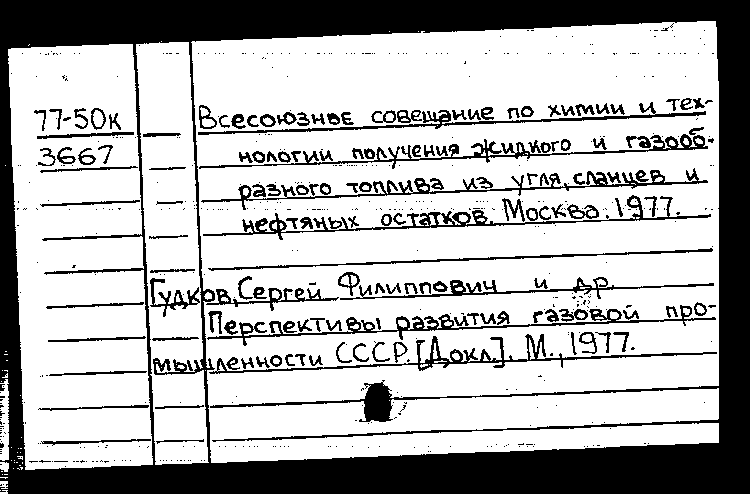 77-50к Всесоюзное совещание по химии и тех-
3667 нологии получения жидкого и газооб-
разного топлива из угля, сланцев и
нефтяных остатков. Москва. 1977.
Гудков, Сергей Филиппович и др.
Перспективы развития газовой про-
мышленности СССР. [Докл.]. М., 1977.